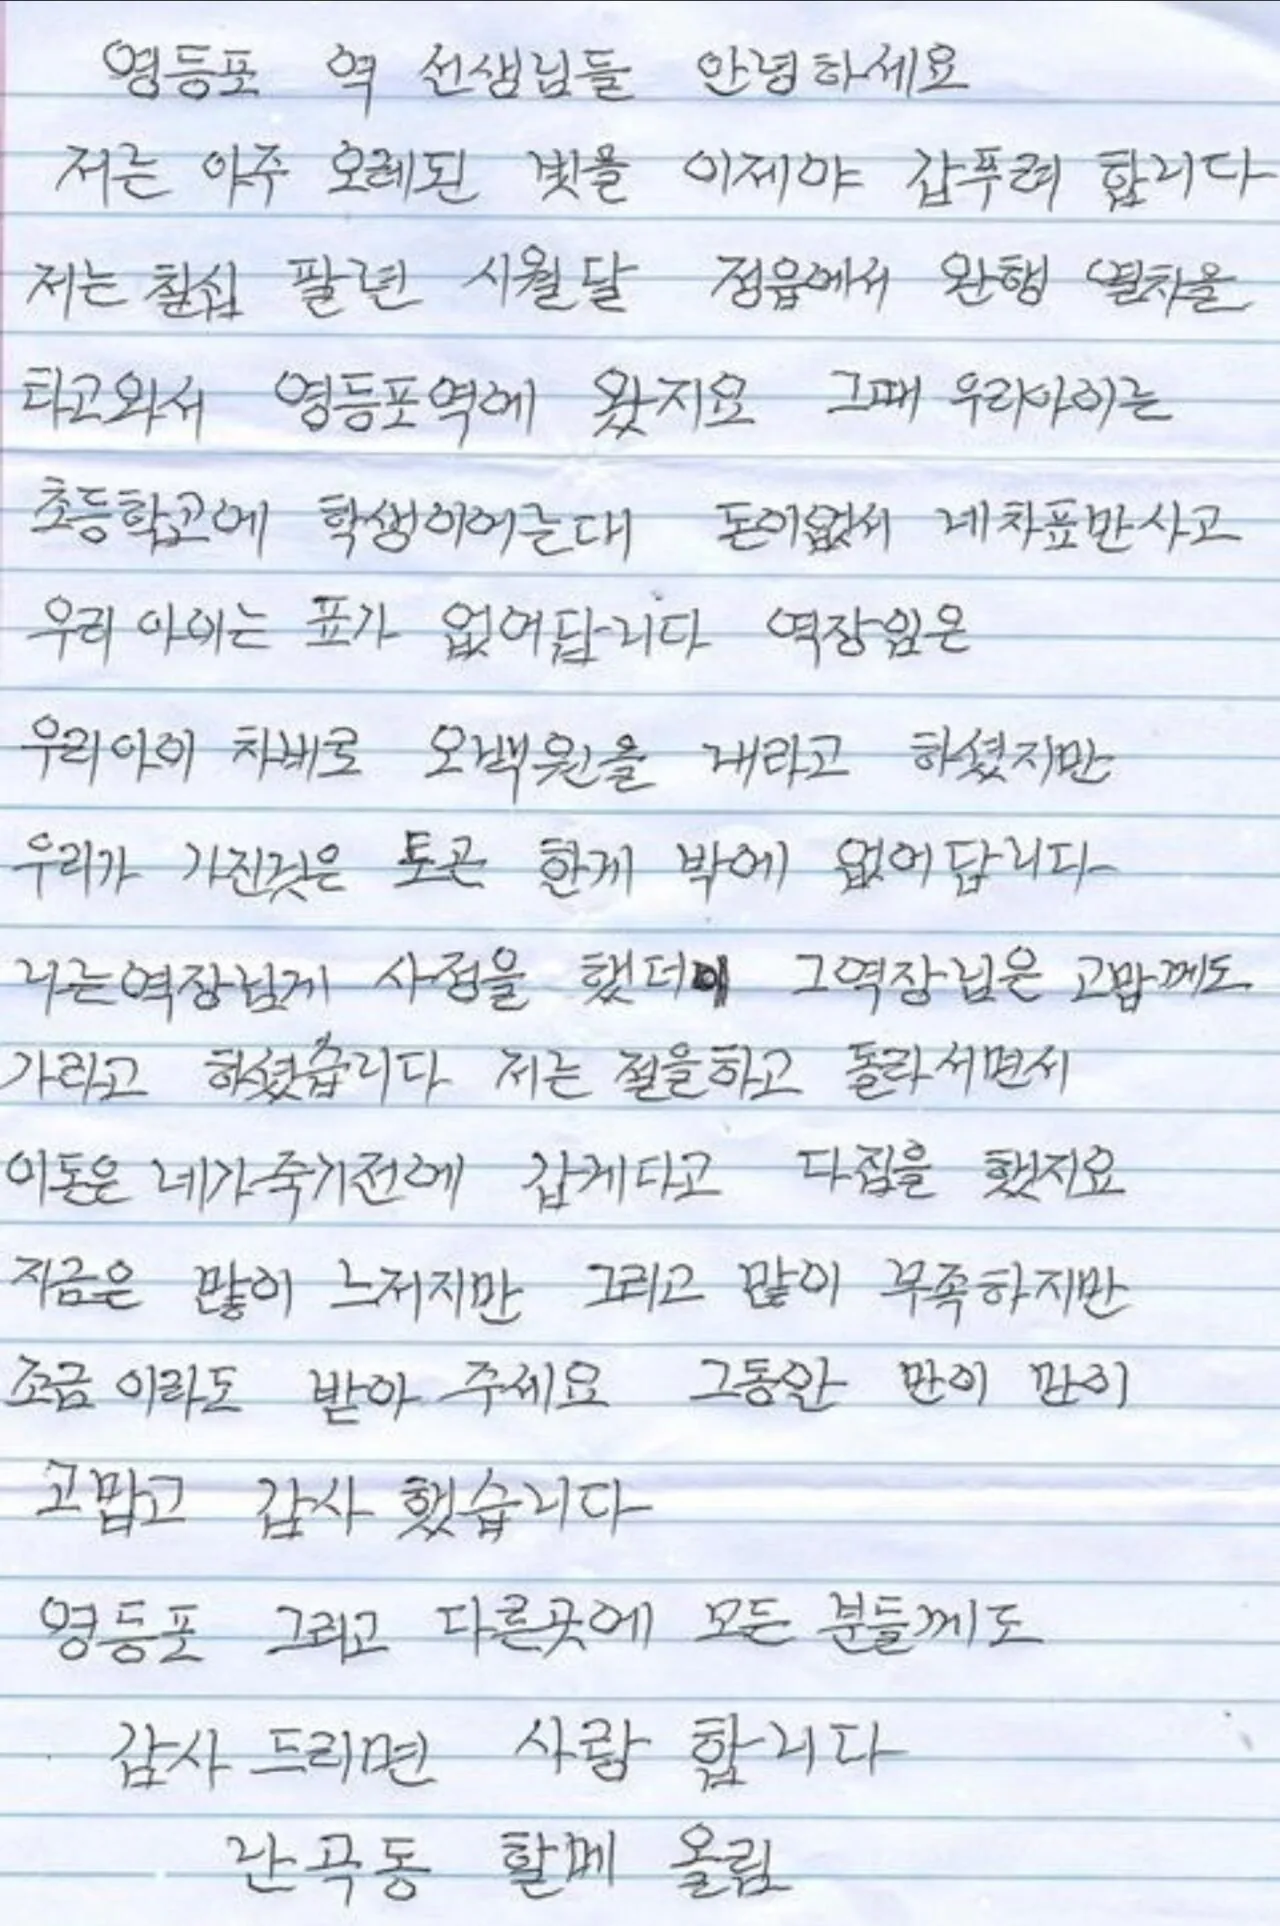 영등포 역 선생님들 안녕하세요
저는 아주 오레된 빛을 이제야 갑푸려 합니다
저는 칠십 팔년 시월달 정읍에서 완행 열차을
타고와서 영등포역에 왔지요 그때 우리아이는
초등학교에 학생이어는대 돈이없서 네차표만사고
우리 아이는 표가 없어답니다 역장임은
우리아이 차비로 오백원을 내라고 하셨지만
우리가 가진것은 토근 한게 박에 없어답니다
나는역장님게 사정을 했더이 그역장님은 고밥께도
가라고 하셨습니다 저는 절을하고 돌라서면서
이돈은 네가죽기전에 갑게다고 다짐을 했지요
지금은 많이 느저지만 그리고 많이 부족하지만
조금이라도 받아 주세요 그동안 만이 만이
고맙고 감사 했습니다
영등포 그리고 다른곳에 모든 분들께도
감사 드리면 사랑 합니다
난곡동 할메 올림